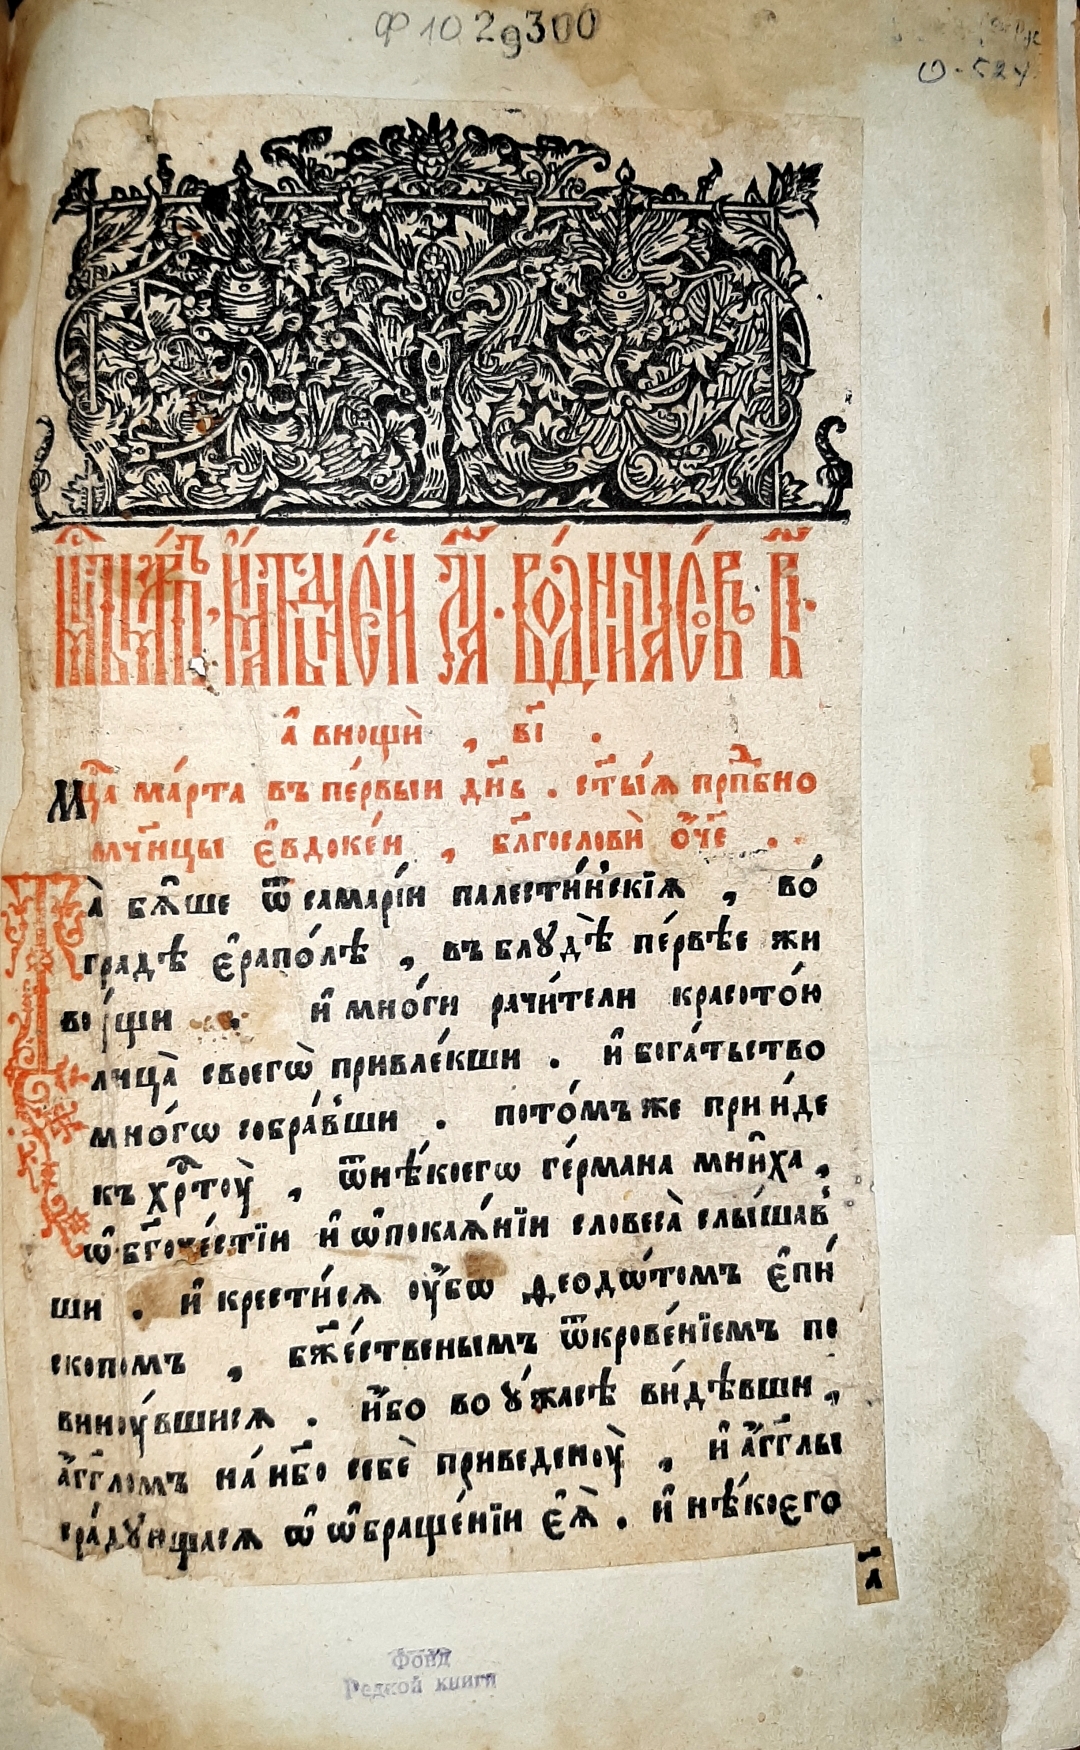 Ф 10 2 9300
Мцⷭ҇ъ ма́ртъ . и҆́мать дне́й л҃а . во́дни часѡ́въ в҃і .
а҆ внощѝ , в҃і .
Мцⷭ҇а ма́рта въ пе́рвыи дн҃ь . ст҃ы́ѧ прпⷣбно
мч҃нцы є҆ѵдоке́и , бл҃гословѝ ѻ҆́ч҃е . .
Та̀ бѧ̂ше ѿ самарі́и палести́нскїѧ , во́
градѣ є҆рапо́лѣ , въ блꙋ́дѣ пе́рвѣе жи
вꙋ́щи . и҆ мно́ги рачи́тели красото́ю
лица̀ своегѡ̀ привле́кши . и҆ бога́тьство
мно́гѡ собра́вши . пото́мъ же прии́де
къ хрⷭ҇тоу̀ , ѿ нѣ́коегѡ ге́рмана мни́ха ,
ѡ҆ бг҃оче́стїи и҆ ѡ҆ покаѧ́нїи словеса̀ слы́шав
ши . и҆ крести́сѧ оу҆́бѡ ѳеодѡ́томъ є҆пи́
скопомъ , бж҃е́ственымъ ѿкрове́нїемъ по
виноу́вшисѧ . и҆́бо во ꙋ́жасѣ ви́дѣвши ,
а҆́гг҃ломъ на́ нб҃о себѐ приведеноу̀ , и҆ а҆́гг҃лы
сра́дꙋющасѧ ѡ҆ ѡ҆браще́нїи є҆ѧ̀ . и҆ нѣ́коего
а҃
Фонд
Редкой книги